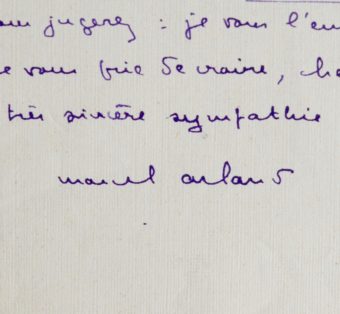 jugerez : je vous l'en
vous prie de croire,
très sincère sympathie
marcel arland